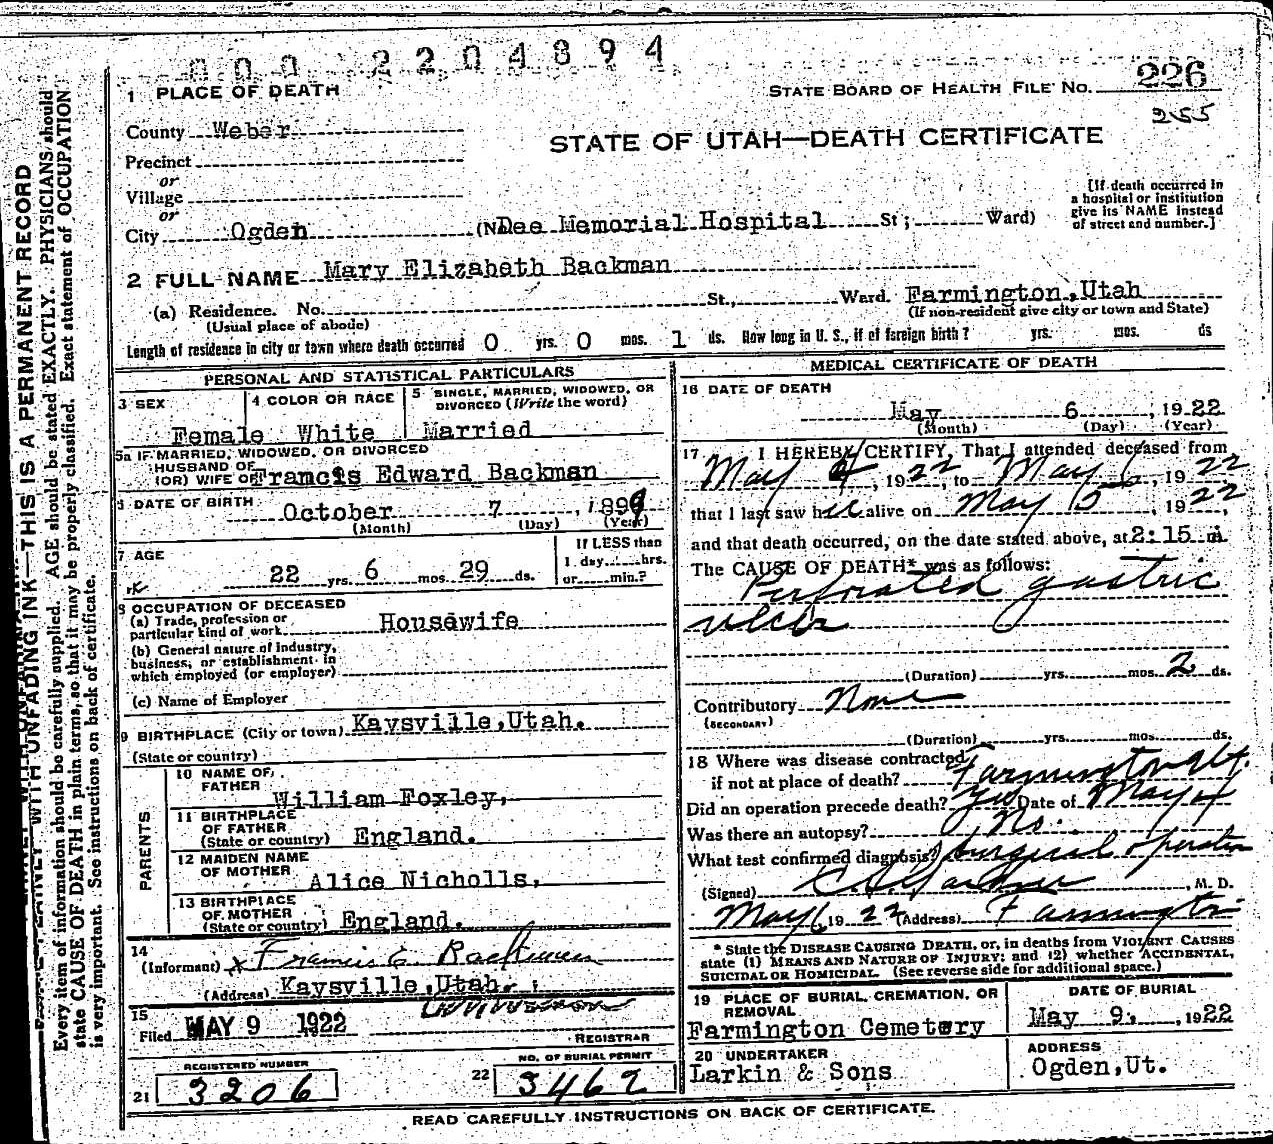 000 2204894
1 PLACE OF DEATH
STATE BOARD OF HEALTH FILE NO. 226
255
County Weber
STATE OF UTAH—DEATH CERTIFICATE
Precinct
or
Village
or
City Ogden (No Dee Memorial Hospital St; Ward)
[If death occurred in
a hospital or institution
give its NAME instead
of street and number.]
2 FULL NAME Mary Elizabeth Backman
(a) Residence. No. St., Ward. Farmington,Utah
(Usual place of abode) (If non-resident give city or town and State)
Length of residence in city or town where death occurred 0 yrs. 0 mos. 1 ds. How long in U. S., if of foreign birth? yrs. mos. ds
PERSONAL AND STATISTICAL PARTICULARS
3 SEX
Female
4 COLOR OR RACE
White
5 SINGLE, MARRIED, WIDOWED, OR
DIVORCED (Write the word)
Married
5a IF MARRIED, WIDOWED, OR DIVORCED
HUSBAND OF
(OR) WIFE OF Francis Edward Backman
6 DATE OF BIRTH
October 7, 1899
(Month) (Day) (Year)
7 AGE
22 yrs. 6 mos. 29 ds.
If LESS than
1 day hrs.
or min.?
8 OCCUPATION OF DECEASED
(a) Trade, profession or
particular kind of work Housewife
(b) General nature of Industry,
business, or establishment in
which employed (or employer)
(c) Name of Employer
9 BIRTHPLACE (City or town) Kaysville,Utah.
(State or country)
PARENTS
10 NAME OF
FATHER
William Foxley,
11 BIRTHPLACE
OF FATHER
(State or country) England.
12 MAIDEN NAME
OF MOTHER
Alice Nicholls,
13 BIRTHPLACE
OF MOTHER
(State or country) England.
14
(Informant) x Francis E. Backman
(Address) Kaysville,Utah.
15
Filed MAY 9 1922
REGISTRAR
REGISTERED NUMBER
21 3206
NO. OF BURIAL PERMIT
22 3462
MEDICAL CERTIFICATE OF DEATH
16 DATE OF DEATH
May 6, 1922
(Month) (Day) (Year)
17 I HEREBY CERTIFY, That I attended deceased from
May 4, 1922, to May 6, 1922
that I last saw her alive on May 5, 1922,
and that death occurred, on the date stated above, at 2:15 m.
The CAUSE OF DEATH* was as follows:
Perforated gastric
ulcer
(Duration) yrs. mos. 2 ds.
Contributory None
(SECONDARY)
(Duration) yrs. mos. ds.
18 Where was disease contracted
if not at place of death? Farmington Ut.
Did an operation precede death? Yes Date of May 4
Was there an autopsy? No.
What test confirmed diagnosis? Surgical operation
(Signed) , M. D.
May 6, 1922 (Address) Farmington
* State the DISEASE CAUSING DEATH, or, in deaths from VIOLENT CAUSES
state (1) MEANS AND NATURE OF INJURY; and (2) whether ACCIDENTAL,
SUICIDAL OR HOMICIDAL. (See reverse side for additional space.)
19 PLACE OF BURIAL, CREMATION, OR
REMOVAL
Farmington Cemetery
DATE OF BURIAL
May 9, 1922
20 UNDERTAKER
Larkin & Sons
ADDRESS
Ogden,Ut.
READ CAREFULLY INSTRUCTIONS ON BACK OF CERTIFICATE.
WITH UNFADING INK—THIS IS A PERMANENT RECORD
Every item of information should be carefully supplied. AGE should be stated EXACTLY. PHYSICIANS should
state CAUSE OF DEATH in plain terms, so that it may be properly classified. Exact statement of OCCUPATION
is very important. See instructions on back of certificate.